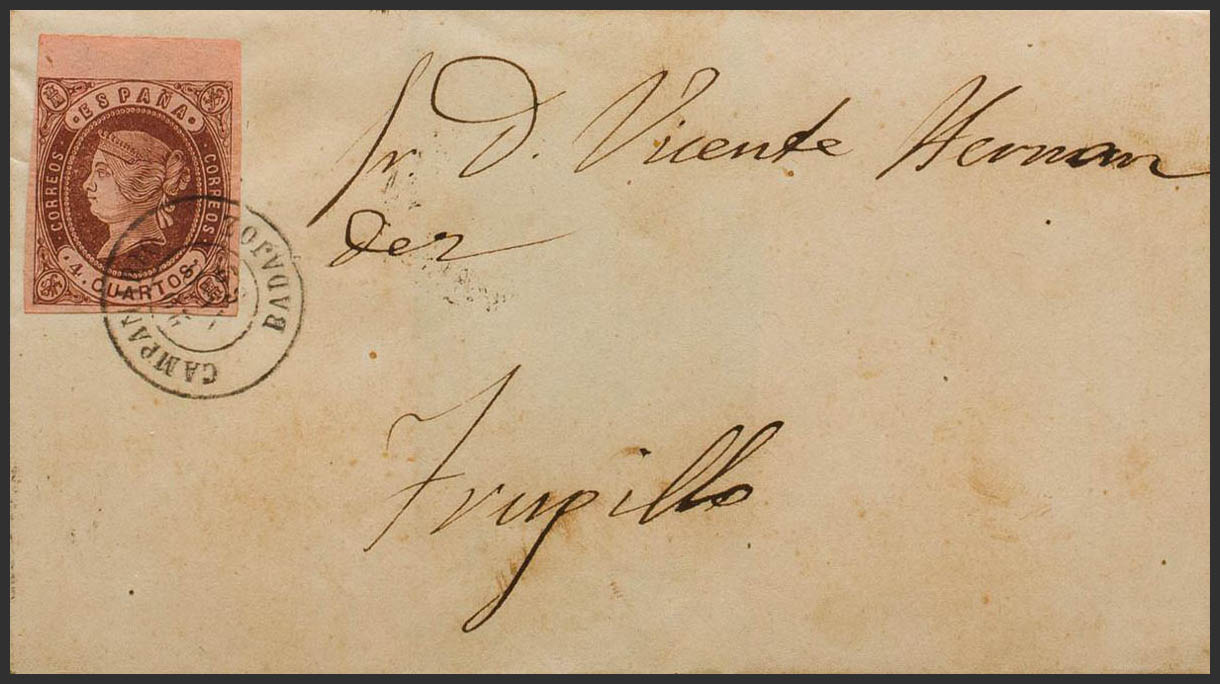 ESPAÑA
CORREOS
CORREOS
4. CUARTOS
BADAJOZ
CAMPAN
Sr. D. Vicente Hernan
dez
Trugillo